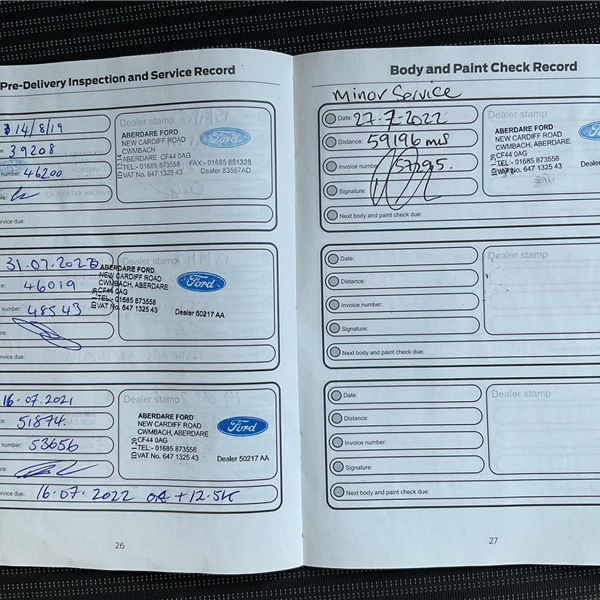 Pre-Delivery Inspection and Service Record
14/8/19
39208
46200
Dealer stamp
ABERDARE FORD
NEW CARDIFF ROAD
CWMBACH
ABERDARE CF44 0AG
TEL:- 01685 873558 FAX:- 01685 881328
VAT No. 647 1325 43 Dealer 83557AD
Ford
service due:
31.07.2020
46019
number: 48543
ABERDARE FORD
NEW CARDIFF ROAD
CWMBACH, ABERDARE
CF44 0AG
TEL:- 01685 873558
VAT No. 647 1325 43
Ford
Dealer 50217 AA
service due:
16.07.2021
51874.
number: 53656
Dealer stamp
ABERDARE FORD
NEW CARDIFF ROAD
CWMBACH, ABERDARE
CF44 0AG
TEL:- 01685 873558
VAT No. 647 1325 43
Ford
Dealer 50217 AA
service due: 16.07.2022 or +12.5K
26
Body and Paint Check Record
Minor Service
Date: 27-7-2022
Distance: 59196 mls
Invoice number: 57295.
Signature:
Next body and paint check due:
Dealer stamp
ABERDARE FORD
NEW CARDIFF ROAD
CWMBACH, ABERDARE
CF44 0AG
TEL:- 01685 873558
Date:
Distance:
Invoice number:
Signature:
Next body and paint check due:
Dealer stamp
Date:
Distance:
Invoice number:
Signature:
Next body and paint check due:
Dealer stamp
27